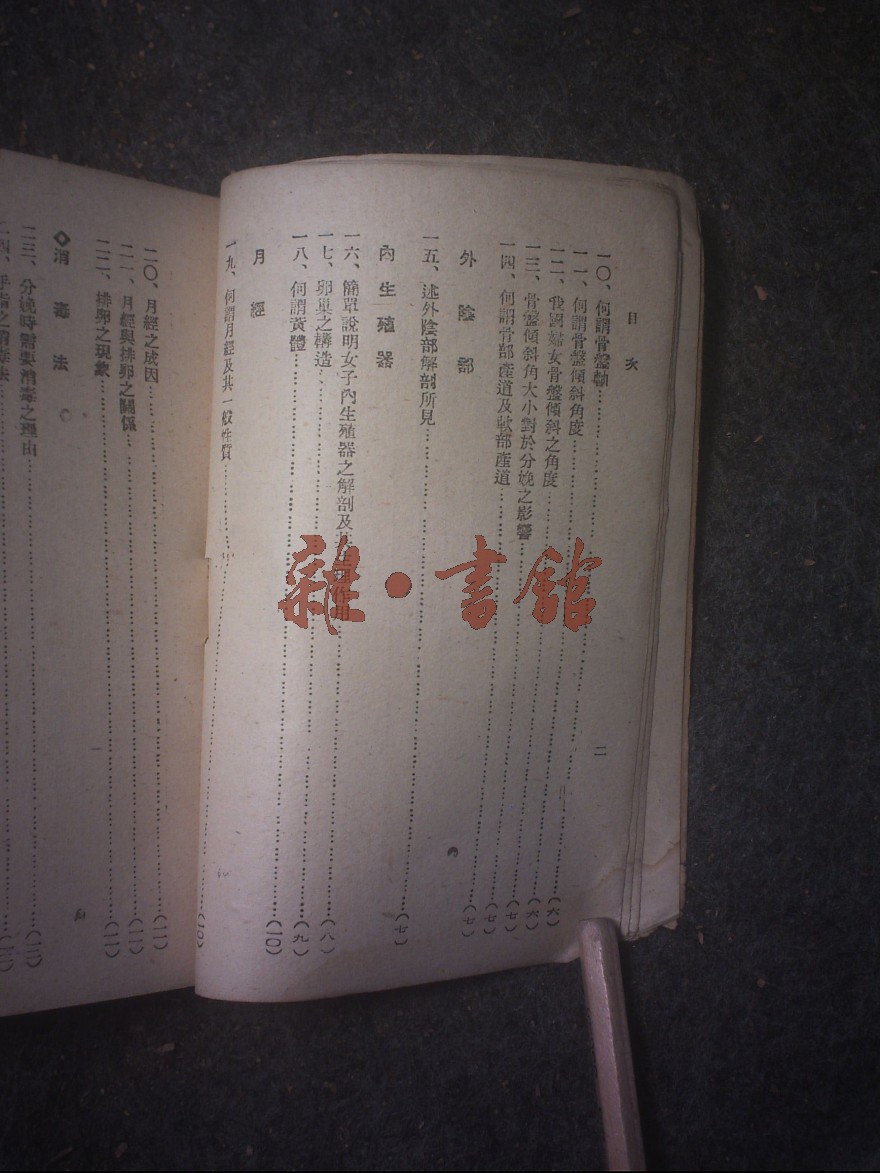 目次
二
一〇、何謂骨盤軸……(六)
一一、何謂骨盤傾斜角度……(六)
一二、我國婦女骨盤傾斜之角度……(七)
一三、骨盤傾斜角大小對於分娩之影響……(七)
一四、何謂骨部產道及軟部產道……(七)
外陰部
一五、述外陰部解剖所見……(七)
內生殖器
一六、簡單說明女子內生殖器之解剖及其生理作用……(八)
一七、卵巢之構造……(九)
一八、何謂黃體……(一〇)
月經
一九、何謂月經及其一般性質……(一〇)
二〇、月經之成因……(一一)
二一、月經與排卵之關係……(一一)
二二、排卵之現象……(一一)
◇消毒法
二三、分娩時需要消毒之理由……(一二)
二四、手指之消毒法……
雜·書館